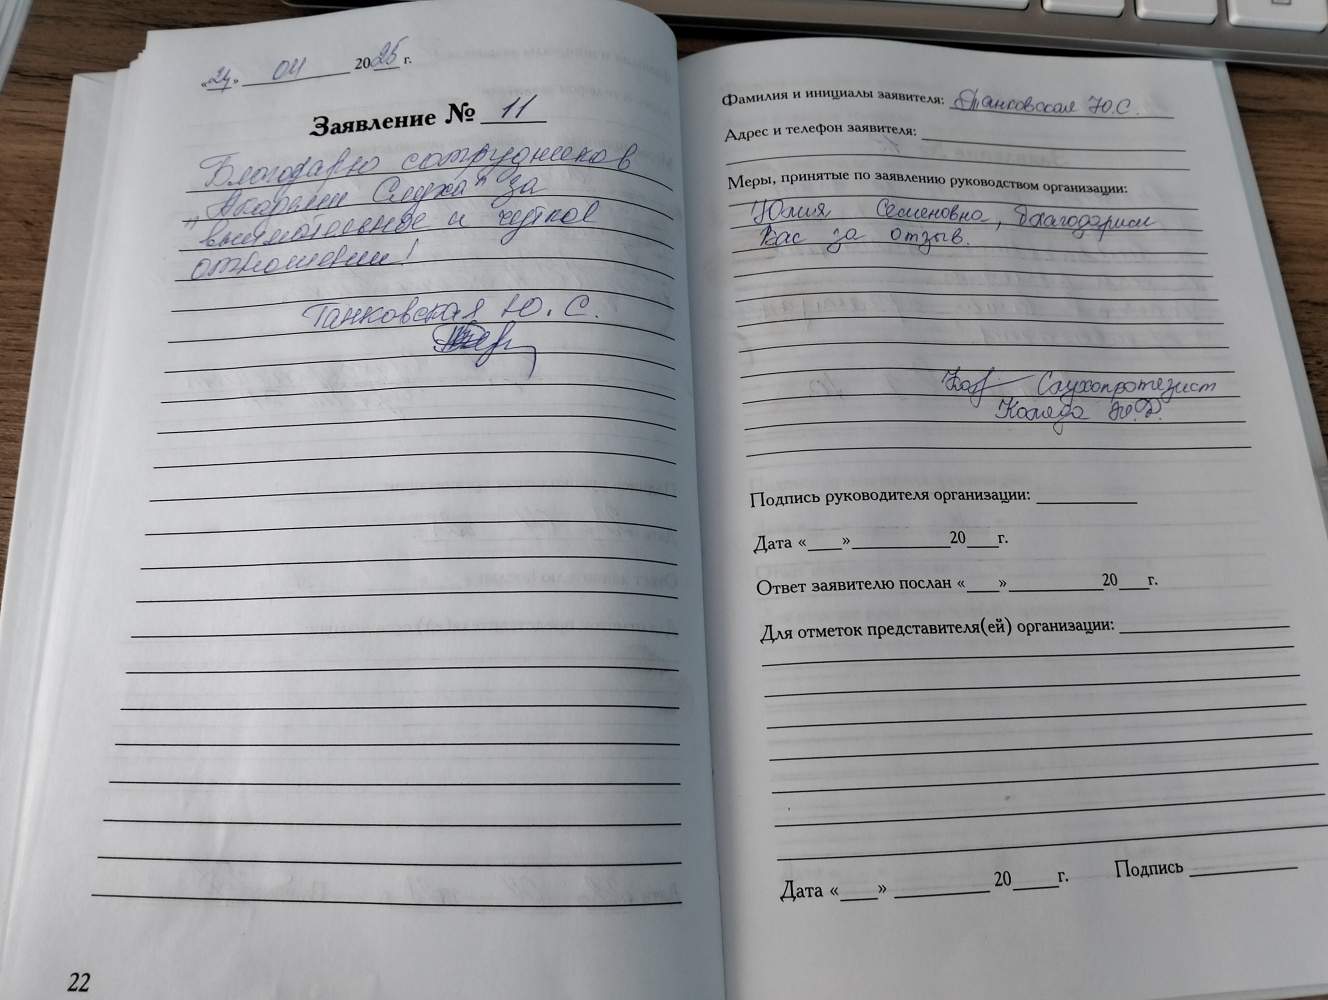 «24» 04 2025 г.
Заявление № 11
Благодарю сотрудников
„Академии Слуха" за
внимательное и чуткое
отношение!
Танковская Ю. С.
22
Фамилия и инициалы заявителя: Танковская Ю.С.
Адрес и телефон заявителя:
Меры, принятые по заявлению руководством организации:
Юлия Семеновна, благодарим
Вас за отзыв.
Слухопротезист
Коляда
Подпись руководителя организации:
Дата «____»__________20___г.
Ответ заявителю послан «____»__________20___г.
Для отметок представителя(ей) организации:
Дата «____» __________20____г. Подпись